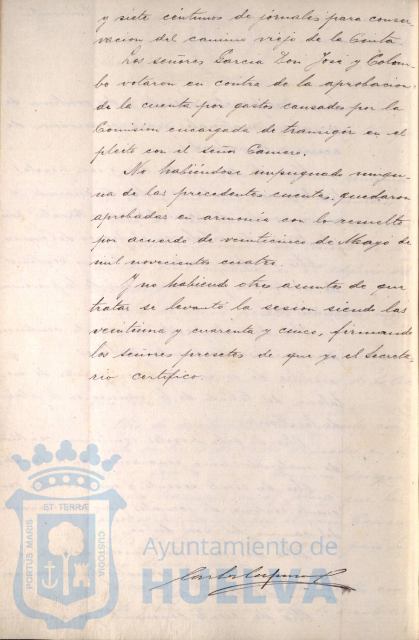 y siete céntimos de jornales para conser-
vacion del camino viejo de la Cinta.
Los señores Garcia Don José y Colom-
bo votaron en contra de la aprobacion
de la cuenta por gastos causados por la
Comision encargada de transigir en el
pleito con el señor Camero.
No habiéndose impugnado ningu-
na de las precedentes cuentas, quedaron
aprobadas en armonia con lo resuelto
por acuerdo de veinticinco de Mayo de
mil novecientos cuatro.
Y no habiendo otros asuntos de que
tratar se levantó la sesion siendo las
veintiuna y cuarenta y cinco, firmando
los señores presetes de que yo el Secreta-
rio certifico.
PORTUS MARIS ET TERRÆ CUSTODIA
Ayuntamiento de
HUELVA